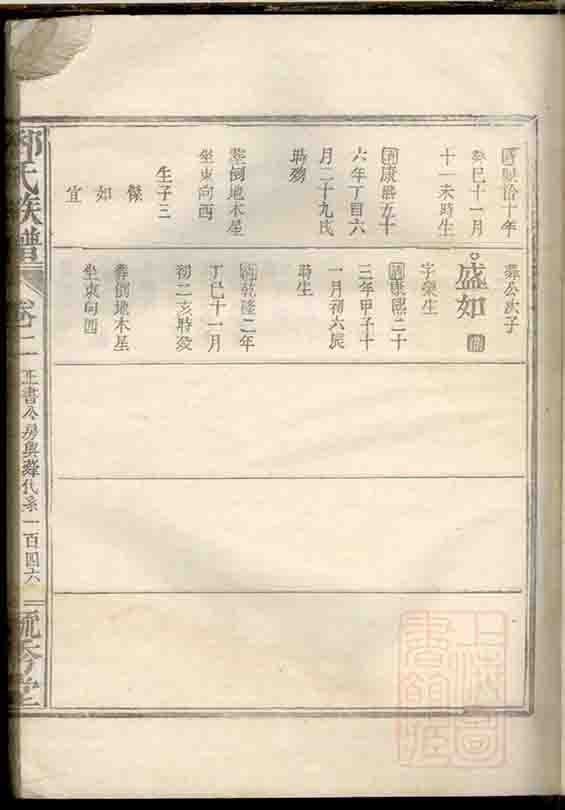 順治十年
癸巳十一月
十一未時生
清康熙五十
六年丁酉六
月二十九戌
時歿
葬倒地木星
坐東向西
生子三
傑
如
宜
舜公次子
盛如
字榮生
清康熙二十
三年甲子十
一月初六辰
時生
清乾隆二年
丁巳十一月
初二亥時歿
葬倒地木星
坐東向西
氏族譜
卷二
正書公房與舜代系
一百四六
毓秀堂
上海圖
書館藏